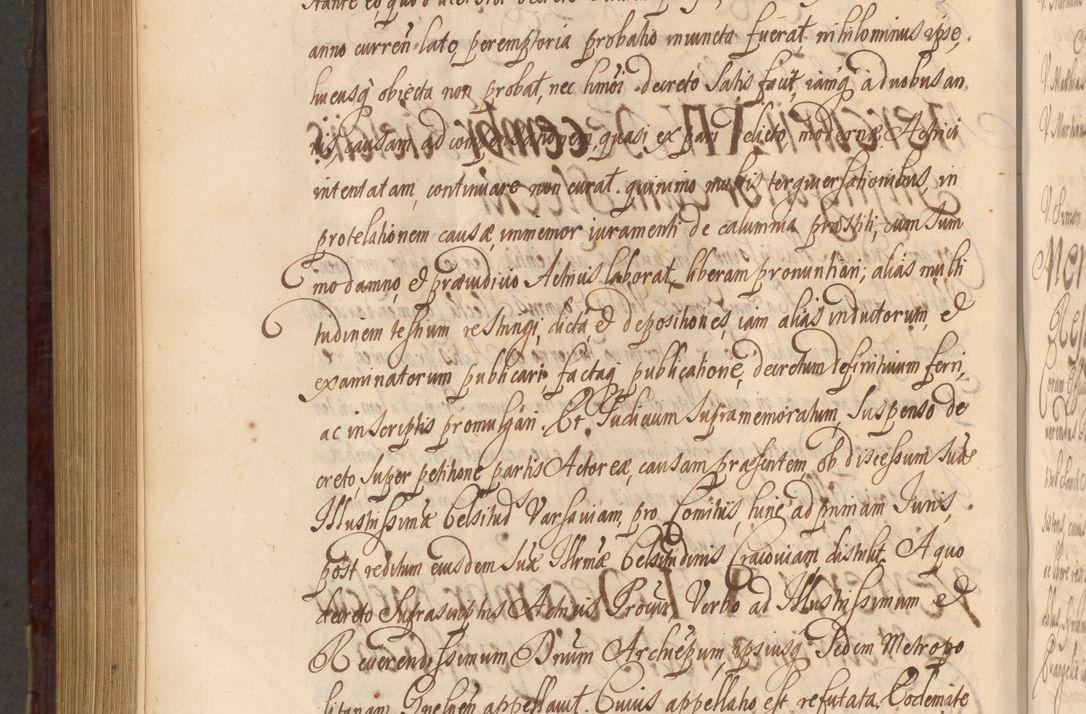 anno curren lato peremptoria probatio iniuncta fuerat nihilominus ipse,
hucusq obiecta non probat, nec himoi decreto satis facit, iamq à duobus an
nis causam ad quasi ex pari delicto modernæ Actrici
intentatam, continuare non curat. quinimo multis tergiuersationibus in
protelationem causæ immemor iuramenti de calumnia præstiti, cum sum
mo damno, et præiudicio Actricis laborat, liberam pronuntiari; aliàs multi
tudinem testium restringi, dicta et depositiones iam aliàs inductorum, et
examinatorum publicari factaq publicatione, decretum definitiuum ferri,
ac in scriptis promulgari. Et Iudicium supramemoratum, suspenso de
creto super petitione partis Actoreæ, causam præsentem ob discessum suæ
Illustrissimæ Celsitud Varsauiam, pro Comitijs, hinc ad primam Iuris,
post reditum eiusdem suæ Illrmæ Celsitudinis Cracouiam distulit. A quo
decreto suprascriptus Actricis Procur, Verbo ad Illustrissimum et
Reuerendissimum Dnum Archiepum, ipsiusq Sedem Metropo
litanam Gnesnen appellauit. Cuius appellatio est refutata. Eodemite